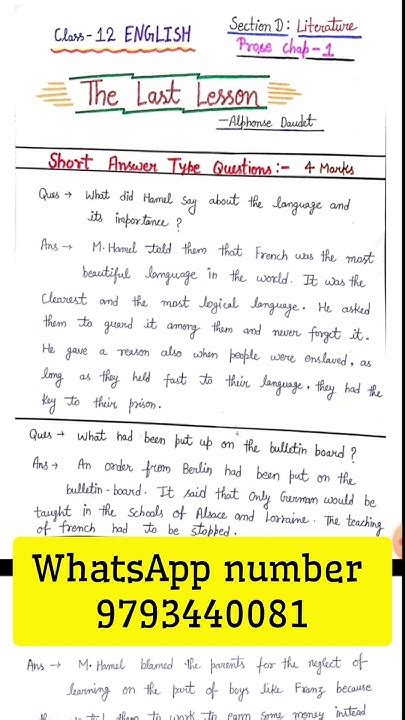 Class-12 ENGLISH
Section D: Literature
Prose Chap-1
The Last Lesson
-Alphonse Daudet
Short Answer Type Questions:- 4 Marks
Ques → What did Hamel say about the language and
its importance ?
Ans → M. Hamel told them that French was the most
beautiful language in the world. It was the
Clearest and the most logical language. He asked
them to guard it among them and never forget it.
He gave a reason also when people were enslaved, as
long as they held fast to their language, they had the
key to their prison.
Ques → What had been put up on the bulletin board ?
Ans → An order from Berlin had been put on the
bulletin-board. It said that Only German would be
taught in the Schools of Alsace and Lorraine. The teaching
of french had to be stopped.
WhatsApp number
9793440081
Ans → M. Hamel blamed the parents for the neglect of
learning on the part of boys like Franz because
them to work to earn some money instead